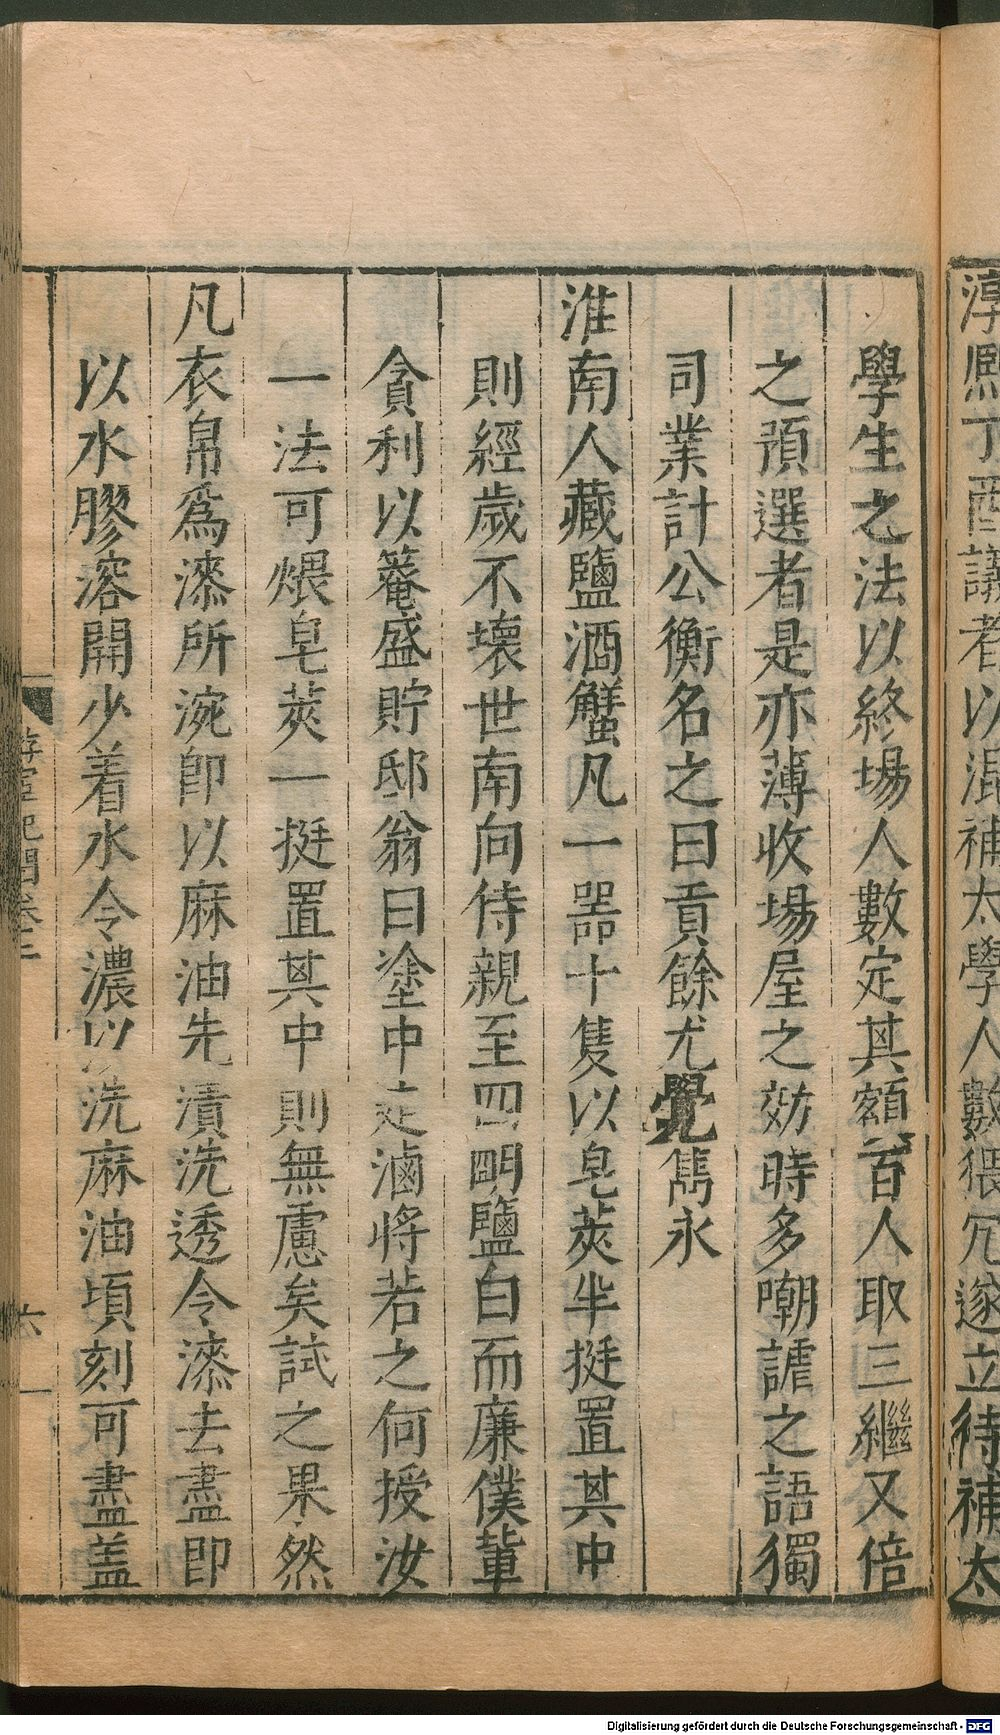 淳熈丁酉議者以混補太學人數猥冗遂立待補太
學生之法以終場人數定其額百人取三繼又倍
之預選者是亦薄收塲屋之効時多嘲謔之語獨
司業計公衡名之曰貢餘尤覺雋永
淮南人藏鹽酒蟹凡一噐十隻以皂莢半挺置其中
則經歲不壞世南向侍親至四明鹽白而廉僕輩
貪利以篭盛貯邸翁曰塗中走滷將若之何授汝
一法可煨皂莢一挺置其中則無慮矣試之果然
凡衣帛爲漆所涴卽以麻油先漬洗透令漆去盡卽
以水膠溶開少着水令濃以洗麻油頃刻可盡盖
游宦紀聞卷二
六
Digitalisierung gefördert durch die Deutsche Forschungsgemeinschaft - DFG